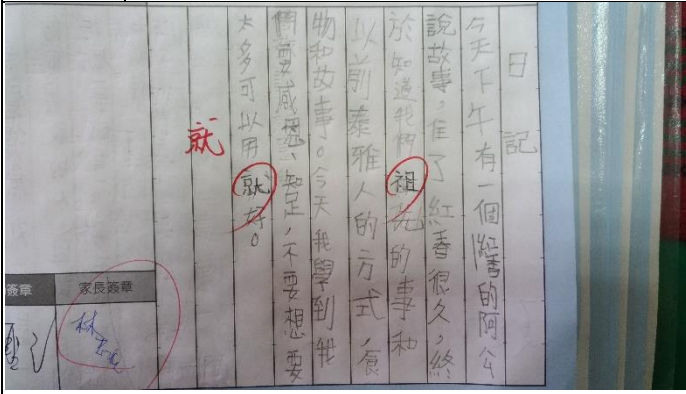 日記
今天下午有一個紅香的阿公
說故事，隹了紅香很久，終
於知道我們祖先的事和
以前泰雅人的方式，食
物和故事。今天我學到我
們要感恩、知足，不要想要
太多可以用就好。
就
家長簽章
簽章